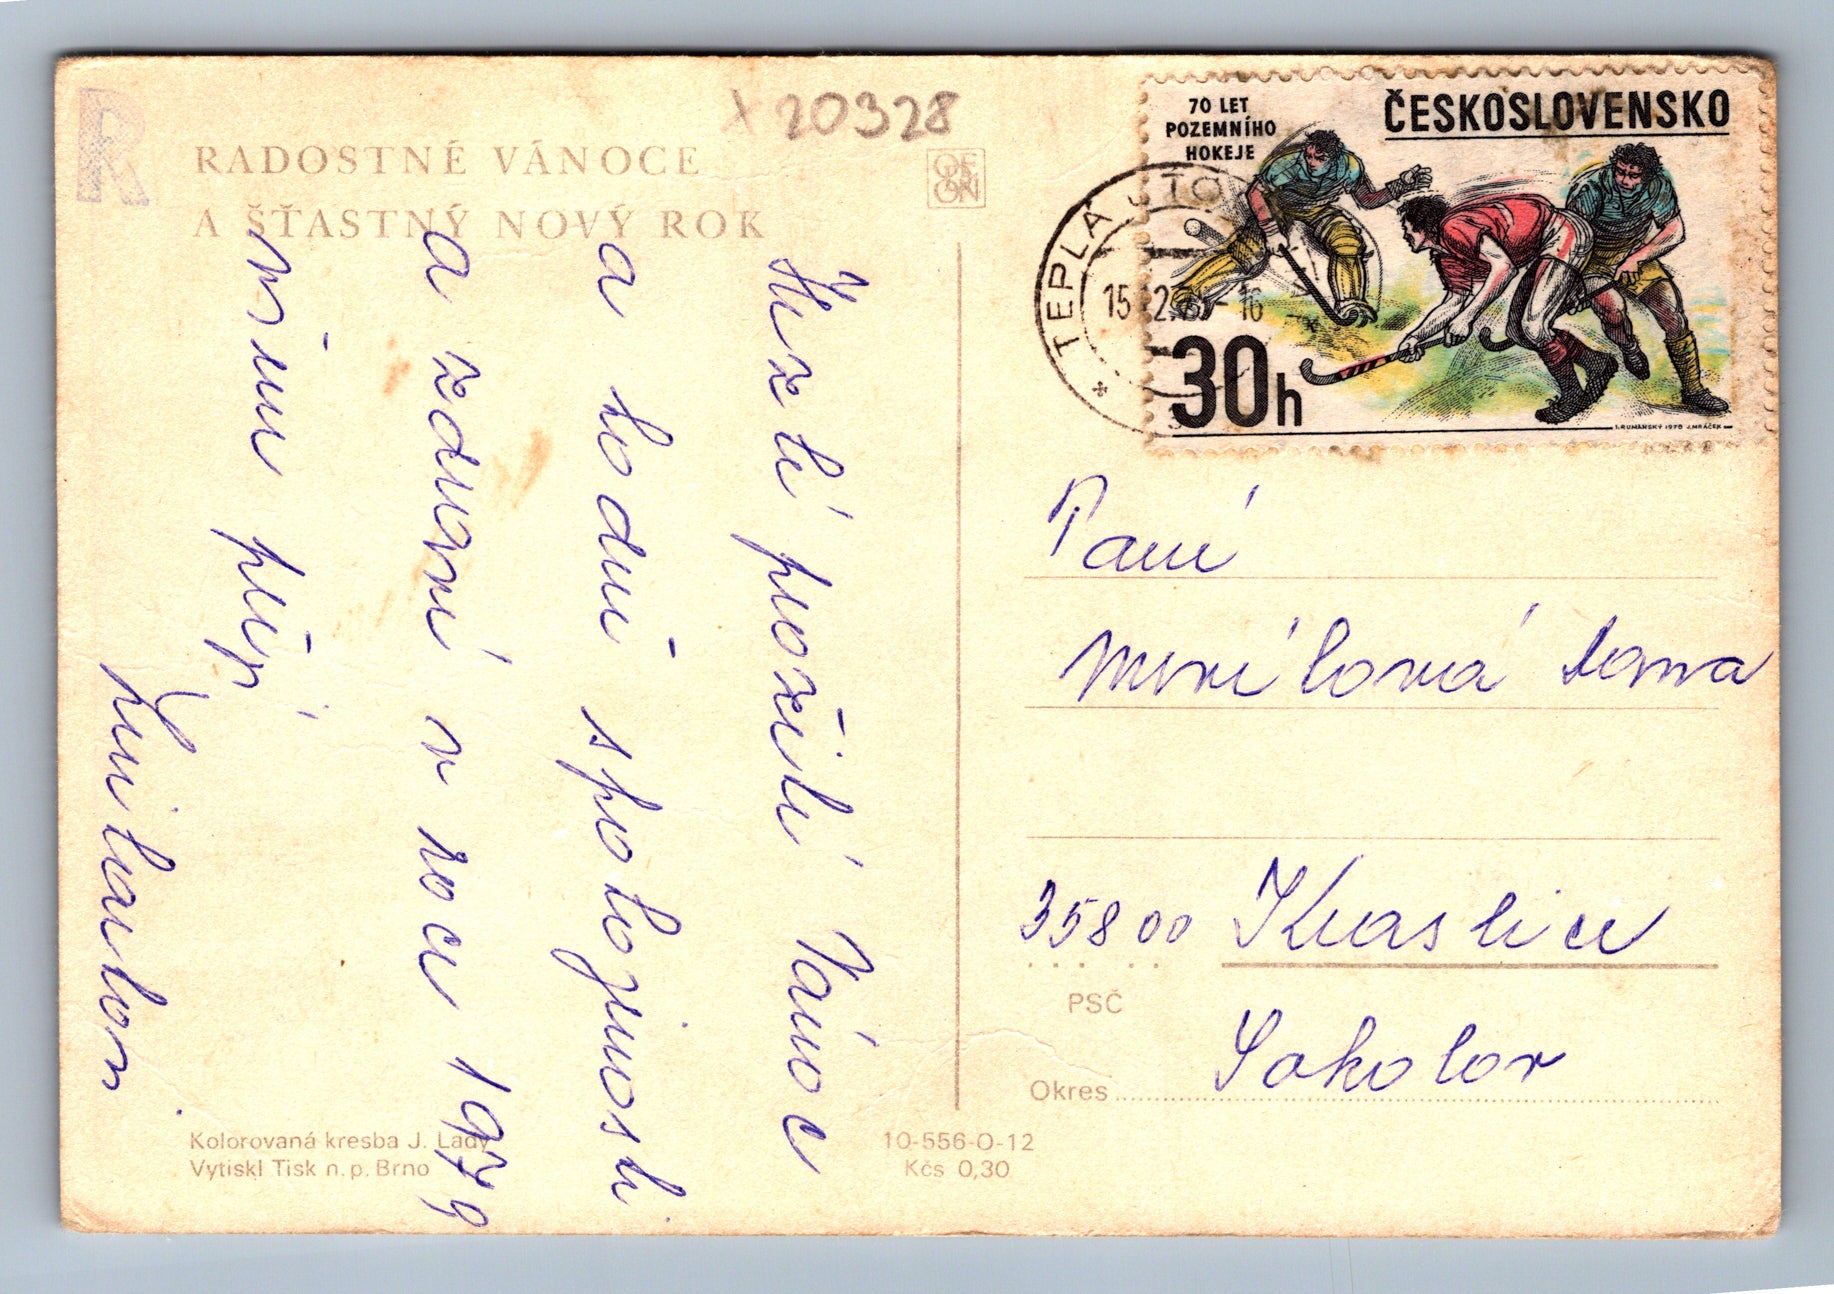 R
X 20328
RADOSTNÉ VÁNOCE
A ŠŤASTNÝ NOVÝ ROK
ODEON
Hezké prožití Vánoc
a hodně spokojnosti
a zdraví v roce 1979
všem přeje
Kolorovaná kresba J. Lady
Vytiskl Tisk n. p. Brno
10-556-O-12
Kčs 0,30
70 LET
POZEMNÍHO
HOKEJE
ČESKOSLOVENSKO
30h
I. RUMANSKÝ 1978 J. MRÁČEK
TEPLÁ U TO
15 12
16
Paní
35800 Kraslice
PSČ
Okres Sokolov